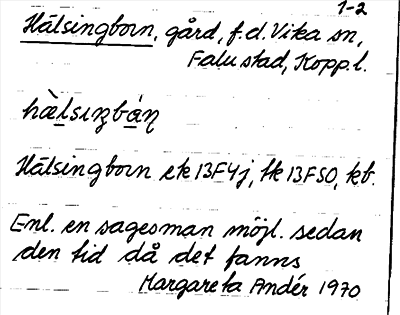 1-2
Hälsingborn, gård, f.d. Vika sn,
Falu stad, Kopp. l.
hæ̀lsıŋbå̱ɳ
Hälsingborn ek 13F4j, tk 13F SO, kb.
Enl. en sagesman möjl. sedan
den tid då det fanns
Margareta Andér 1970